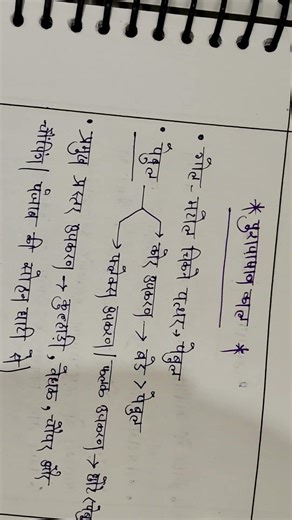 * पुरापाषाण काल *
• गोल-मटोल चिकने पत्थर → पेबुल
• पेबुल → कोर उपकरण → बड़े > पेबुल
→ फलकम उपकरण / फलक उपकरण → छोटे पेबु
• प्रमुख प्रस्तर उपकरण → कुल्हाड़ी, वेधक, चौपर और
चौपिंग / पंजाब की सोहन घाटी से)